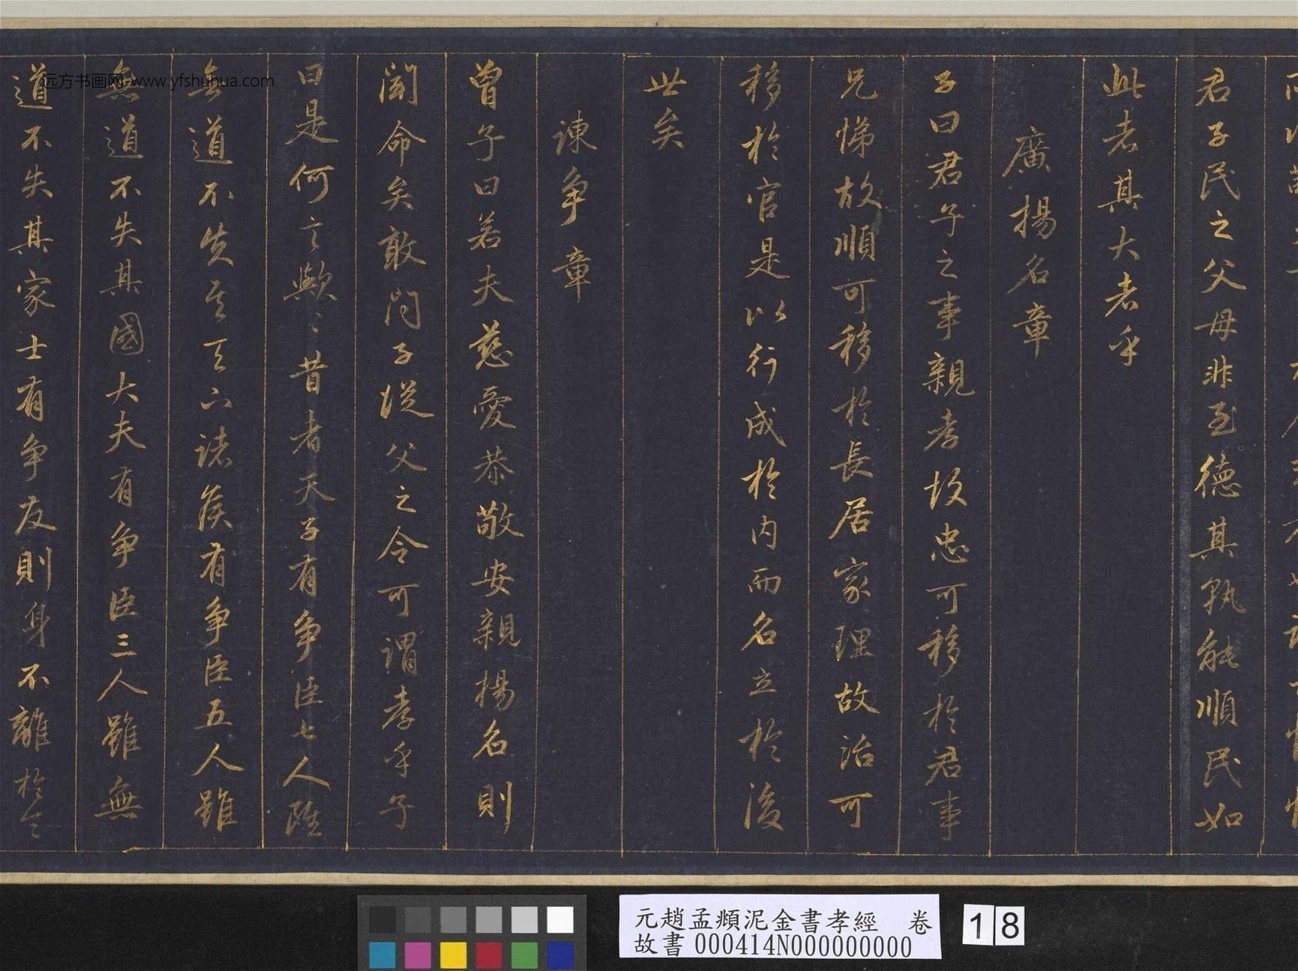 君子民之父母非至德其孰能順民如
此者其大者乎
廣揚名章
子曰君子之事親孝故忠可移於君事
兄悌故順可移於長居家理故治可
移於官是以行成於内而名立於後
世矣
諫争章
曾子曰若夫慈愛恭敬安親揚名則
聞命矣敢問子從父之令可謂孝乎子
曰是何言歟〻昔者天子有争臣七人雖
無道不失其天下諸侯有争臣五人雖
無道不失其國大夫有争臣三人雖無
道不失其家士有争友則身不離於令
远方书画网-www.yfshuhua.com
元趙孟頫泥金書孝經 卷
故書000414N000000000
18